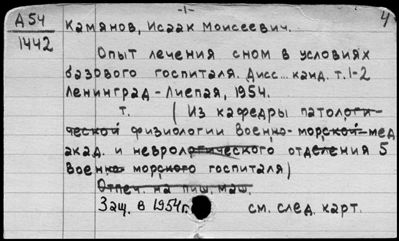 -1-
4
А 54
1442
Камянов, Исаак Моисеевич.
Опыт лечения сном в условиях
базового госпиталя. Дисс... канд. т. 1-2
Ленинград - Лиепая, 1954.
т. (Из кафедры патологи-
ческой физиологии Военно-морской мед.
акад. и неврологического отделения 5
Военно морского госпиталя)
Отпеч. на пиш. маш.
Защ. в 1954г.
см. след. карт.